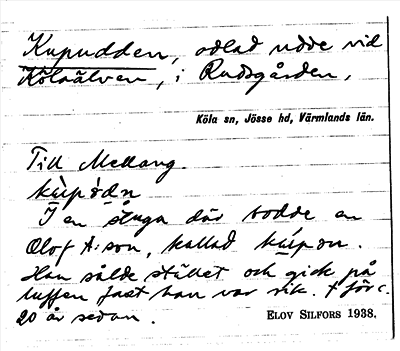 Kupudden, odlad udde vid
Kölaälven, i Rudsgården,
Köla sn, Jösse hd, Värmlands län.
Till Mellang.
kùpə̀dn
I en stuga där bodde en
Olof A:son, kallad kúpon.
Han sålde stället och gick på
luffen fast han var rik. † för c.
20 år sedan.
ELOV SILFORS 1938.